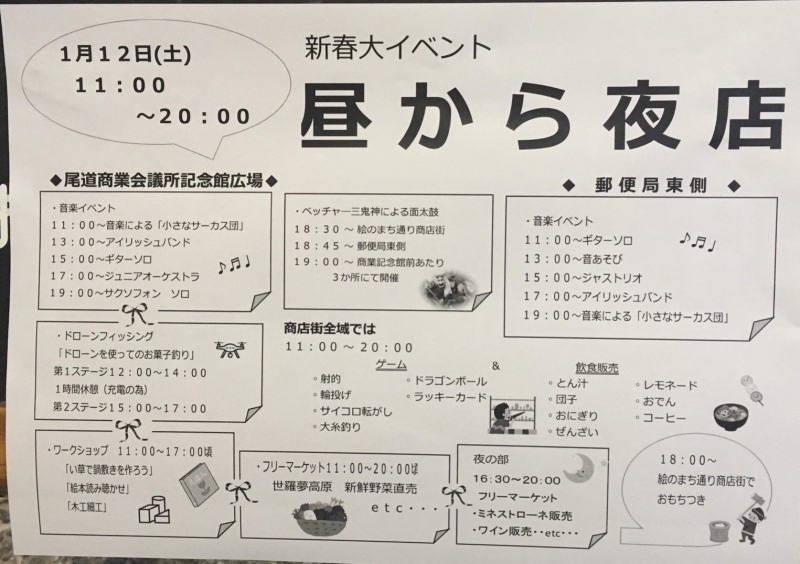 1月12日(土)
11:00
～20:00
新春大イベント
昼から夜店
◆尾道商業会議所記念館広場◆
・音楽イベント
11:00～音楽による「小さなサーカス団」
13:00～アイリッシュバンド
15:00～ギターソロ
17:00～ジュニアオーケストラ
19:00～サクソフォン ソロ
・ベッチャ―三鬼神による面太鼓
18:30 ～ 絵のまち通り商店街
18:45 ～ 郵便局東側
19:00 ～ 商業記念館前あたり
3か所にて開催
◆ 郵便局東側 ◆
・音楽イベント
11:00～ギターソロ
13:00～音あそび
15:00～ジャストリオ
17:00～アイリッシュバンド
19:00～音楽による「小さなサーカス団」
・ドローンフィッシング
「ドローンを使ってのお菓子釣り」
第1ステージ12:00～14:00
1時間休憩(充電の為)
第2ステージ15:00～17:00
商店街全域では
11:00 ～ 20:00
ゲーム
◦射的
◦輪投げ
◦サイコロ転がし
◦大糸釣り
◦ドラゴンボール
◦ラッキーカード
&
飲食販売
◦とん汁
◦団子
◦おにぎり
◦ぜんざい
◦レモネード
◦おでん
◦コーヒー
・ワークショップ 11:00～17:00頃
「い草で鍋敷きを作ろう」
「絵本読み聴かせ」
「木工細工」
・フリーマーケット11:00～20:00頃
世羅夢高原 新鮮野菜直売
etc・・・
夜の部
16:30～20:00
フリーマーケット
・ミネストローネ販売
・ワイン販売・・etc・・・
18:00～
絵のまち通り商店街で
おもちつき